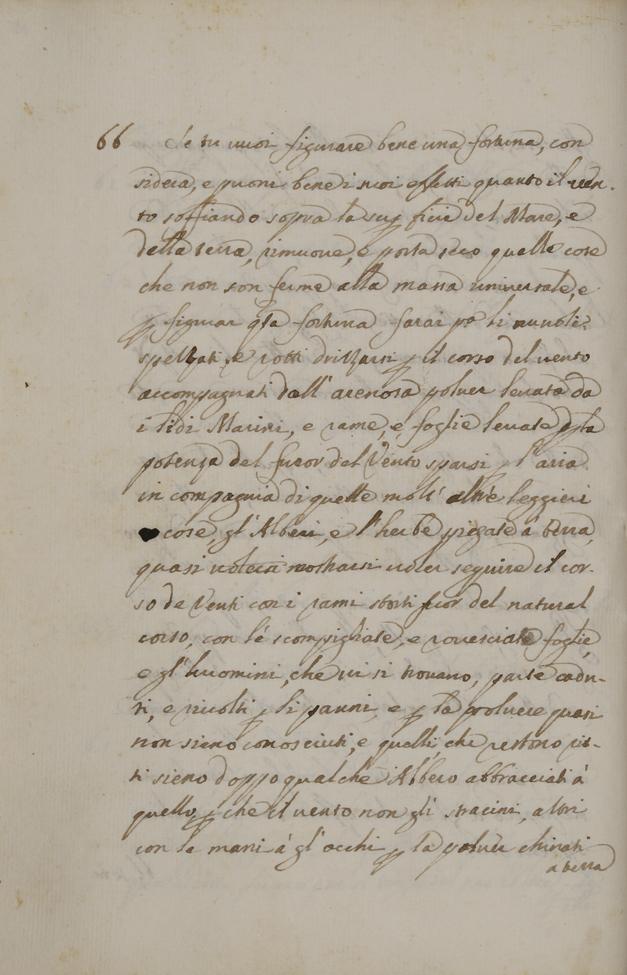 66 Se tu vuoi figurare bene una fortuna, con
sidera, e puoni bene i suoi effetti quanto il ven-
to soffiando sopra la sup ficie del Mare, e
della terra, rimuove, e porta seco quelle cose
che non son ferme alla massa universale, e
p figurar qta fortuna farai po li nuuoli
spezzati, e rotti drizzarsi p il corso del vento
accompagnati dall' arenosa poluer leuata da
i lidi Marini, e rame, e foglie leuate p la
potenza del furor del Vento sparsi p l'aria
in compagnia di quelle molt' altre leggieri
cose, gl' Alberi, e l'herbe piegate à terra,
quasi mostrarsi uoler seguire il cor-
so de Venti con i rami storti fuor del natural
corso, con le scompigliate, e rouersciate foglie,
e gl' huomini, che ui si trouano, parte cadu-
ti, e riuolti p li panni, e p la poluere quasi
non sieno conosciuti, e quelli, che restono rit-
ti sieno doppo qualche Albero abbracciati à
quello, p che il uento non gli stracini, altri
con le mani à gl' occhi p la poluer chinati
a terra